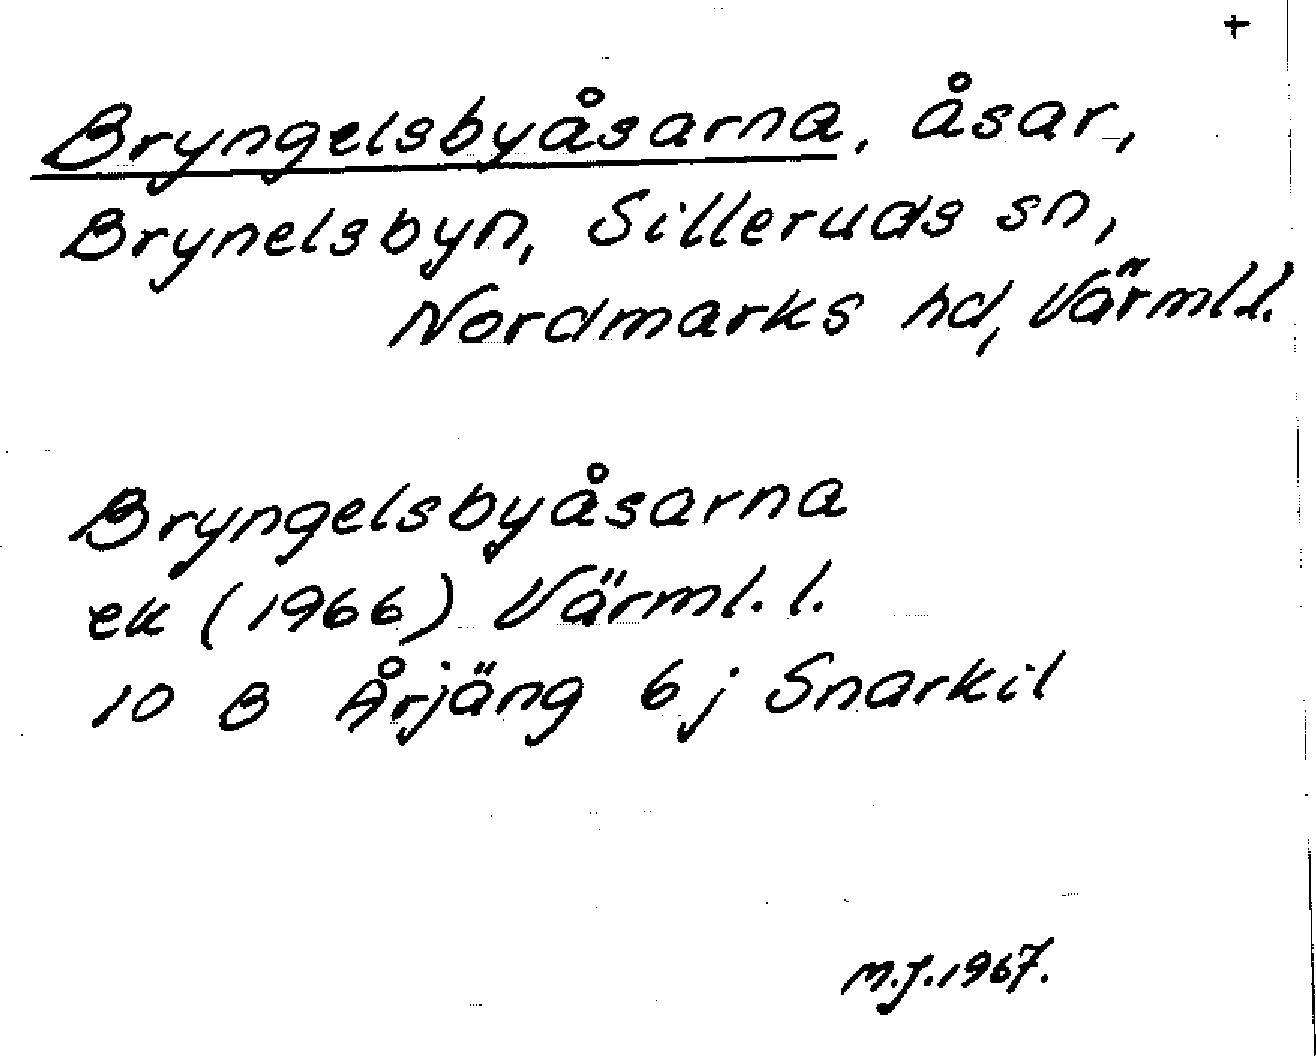 +
Bryngelsbyåsarna, åsar,
Brynelsbyn, Silleruds sn,
Nordmarks hd, Värml.l.
Bryngelsbyåsarna
ek (1966) Värml. l.
10 B Årjäng 6j Snarkil
M.J. 1967.